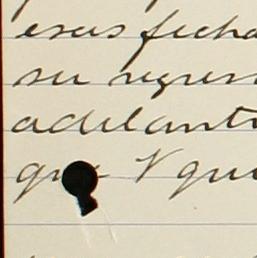 esas fecha
su regres
adelant
que V qui